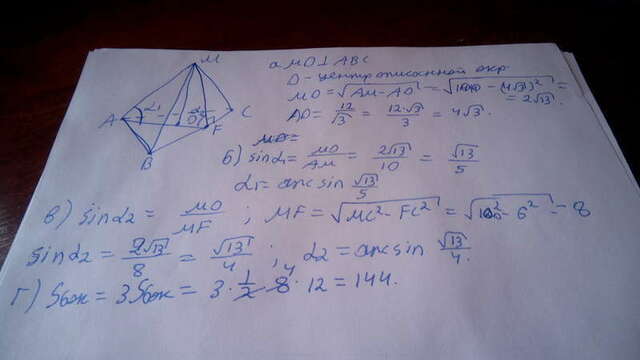 M
A
B
C
F
O
α₁
α₂
а. MO ⊥ ABC
O - центр описанной окр.
MO = √AM - AO = √100 - (4√3)² =
= 2√13.
AO = 12/√3 = 12·√3/3 = 4√3.
MO =
б) sinα₁ = MO/AM = 2√13/10 = √13/5
α₁ = arcsin √13/5
в) sinα₂ = MO/MF ; MF = √MC² - FC² = √10² - 6² = 8
sinα₂ = 2√13/8 = √13/4 ; α₂ = arcsin √13/4.
г) Sбок = 3Sбок = 3 · 1/2 · 8 · 12 = 144.
4